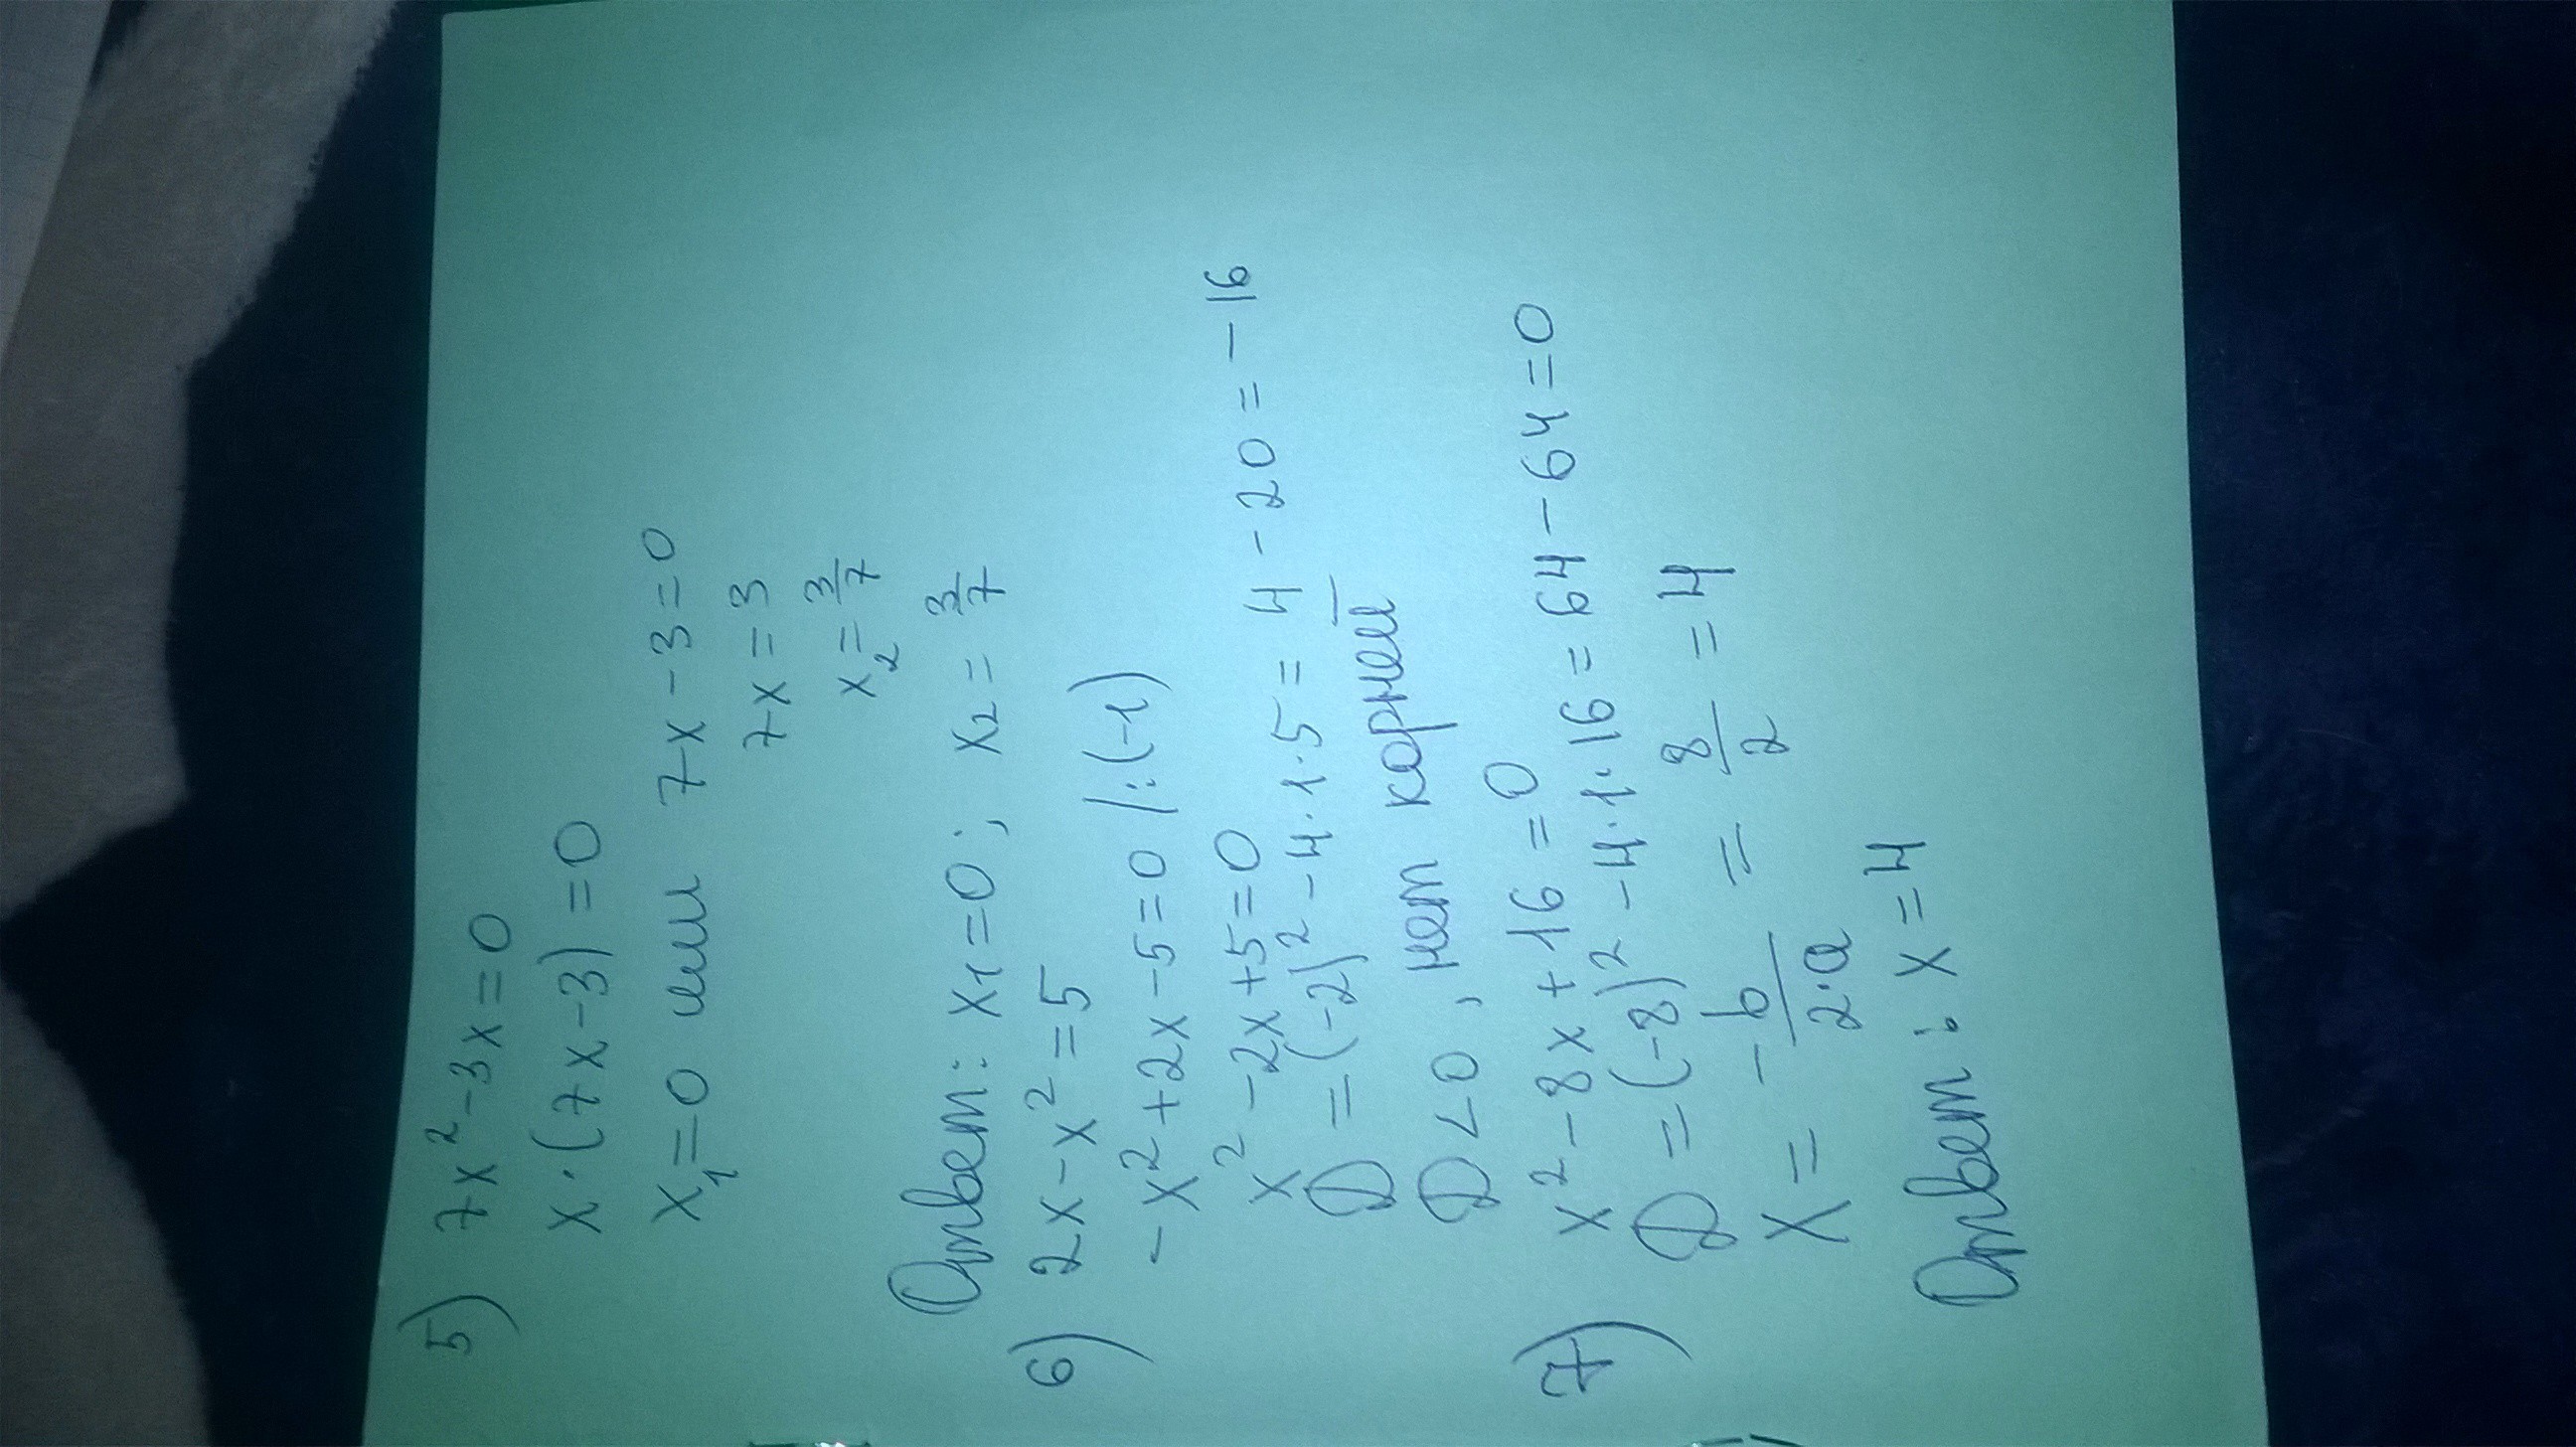 5) 7x² - 3x = 0
x · (7x - 3) = 0
x₁ = 0 или 7x - 3 = 0
7x = 3
x₂ = 3/7
Ответ: x₁ = 0; x₂ = 3/7
6) 2x - x² = 5
-x² + 2x - 5 = 0 /:(-1)
x² - 2x + 5 = 0
D = (-2)² - 4·1·5 = 4 - 20 = -16
D < 0, нет корней
7) x² - 8x + 16 = 0
D = (-8)² - 4·1·16 = 64 - 64 = 0
x = -b/2·a = 8/2 = 4
Ответ: x = 4